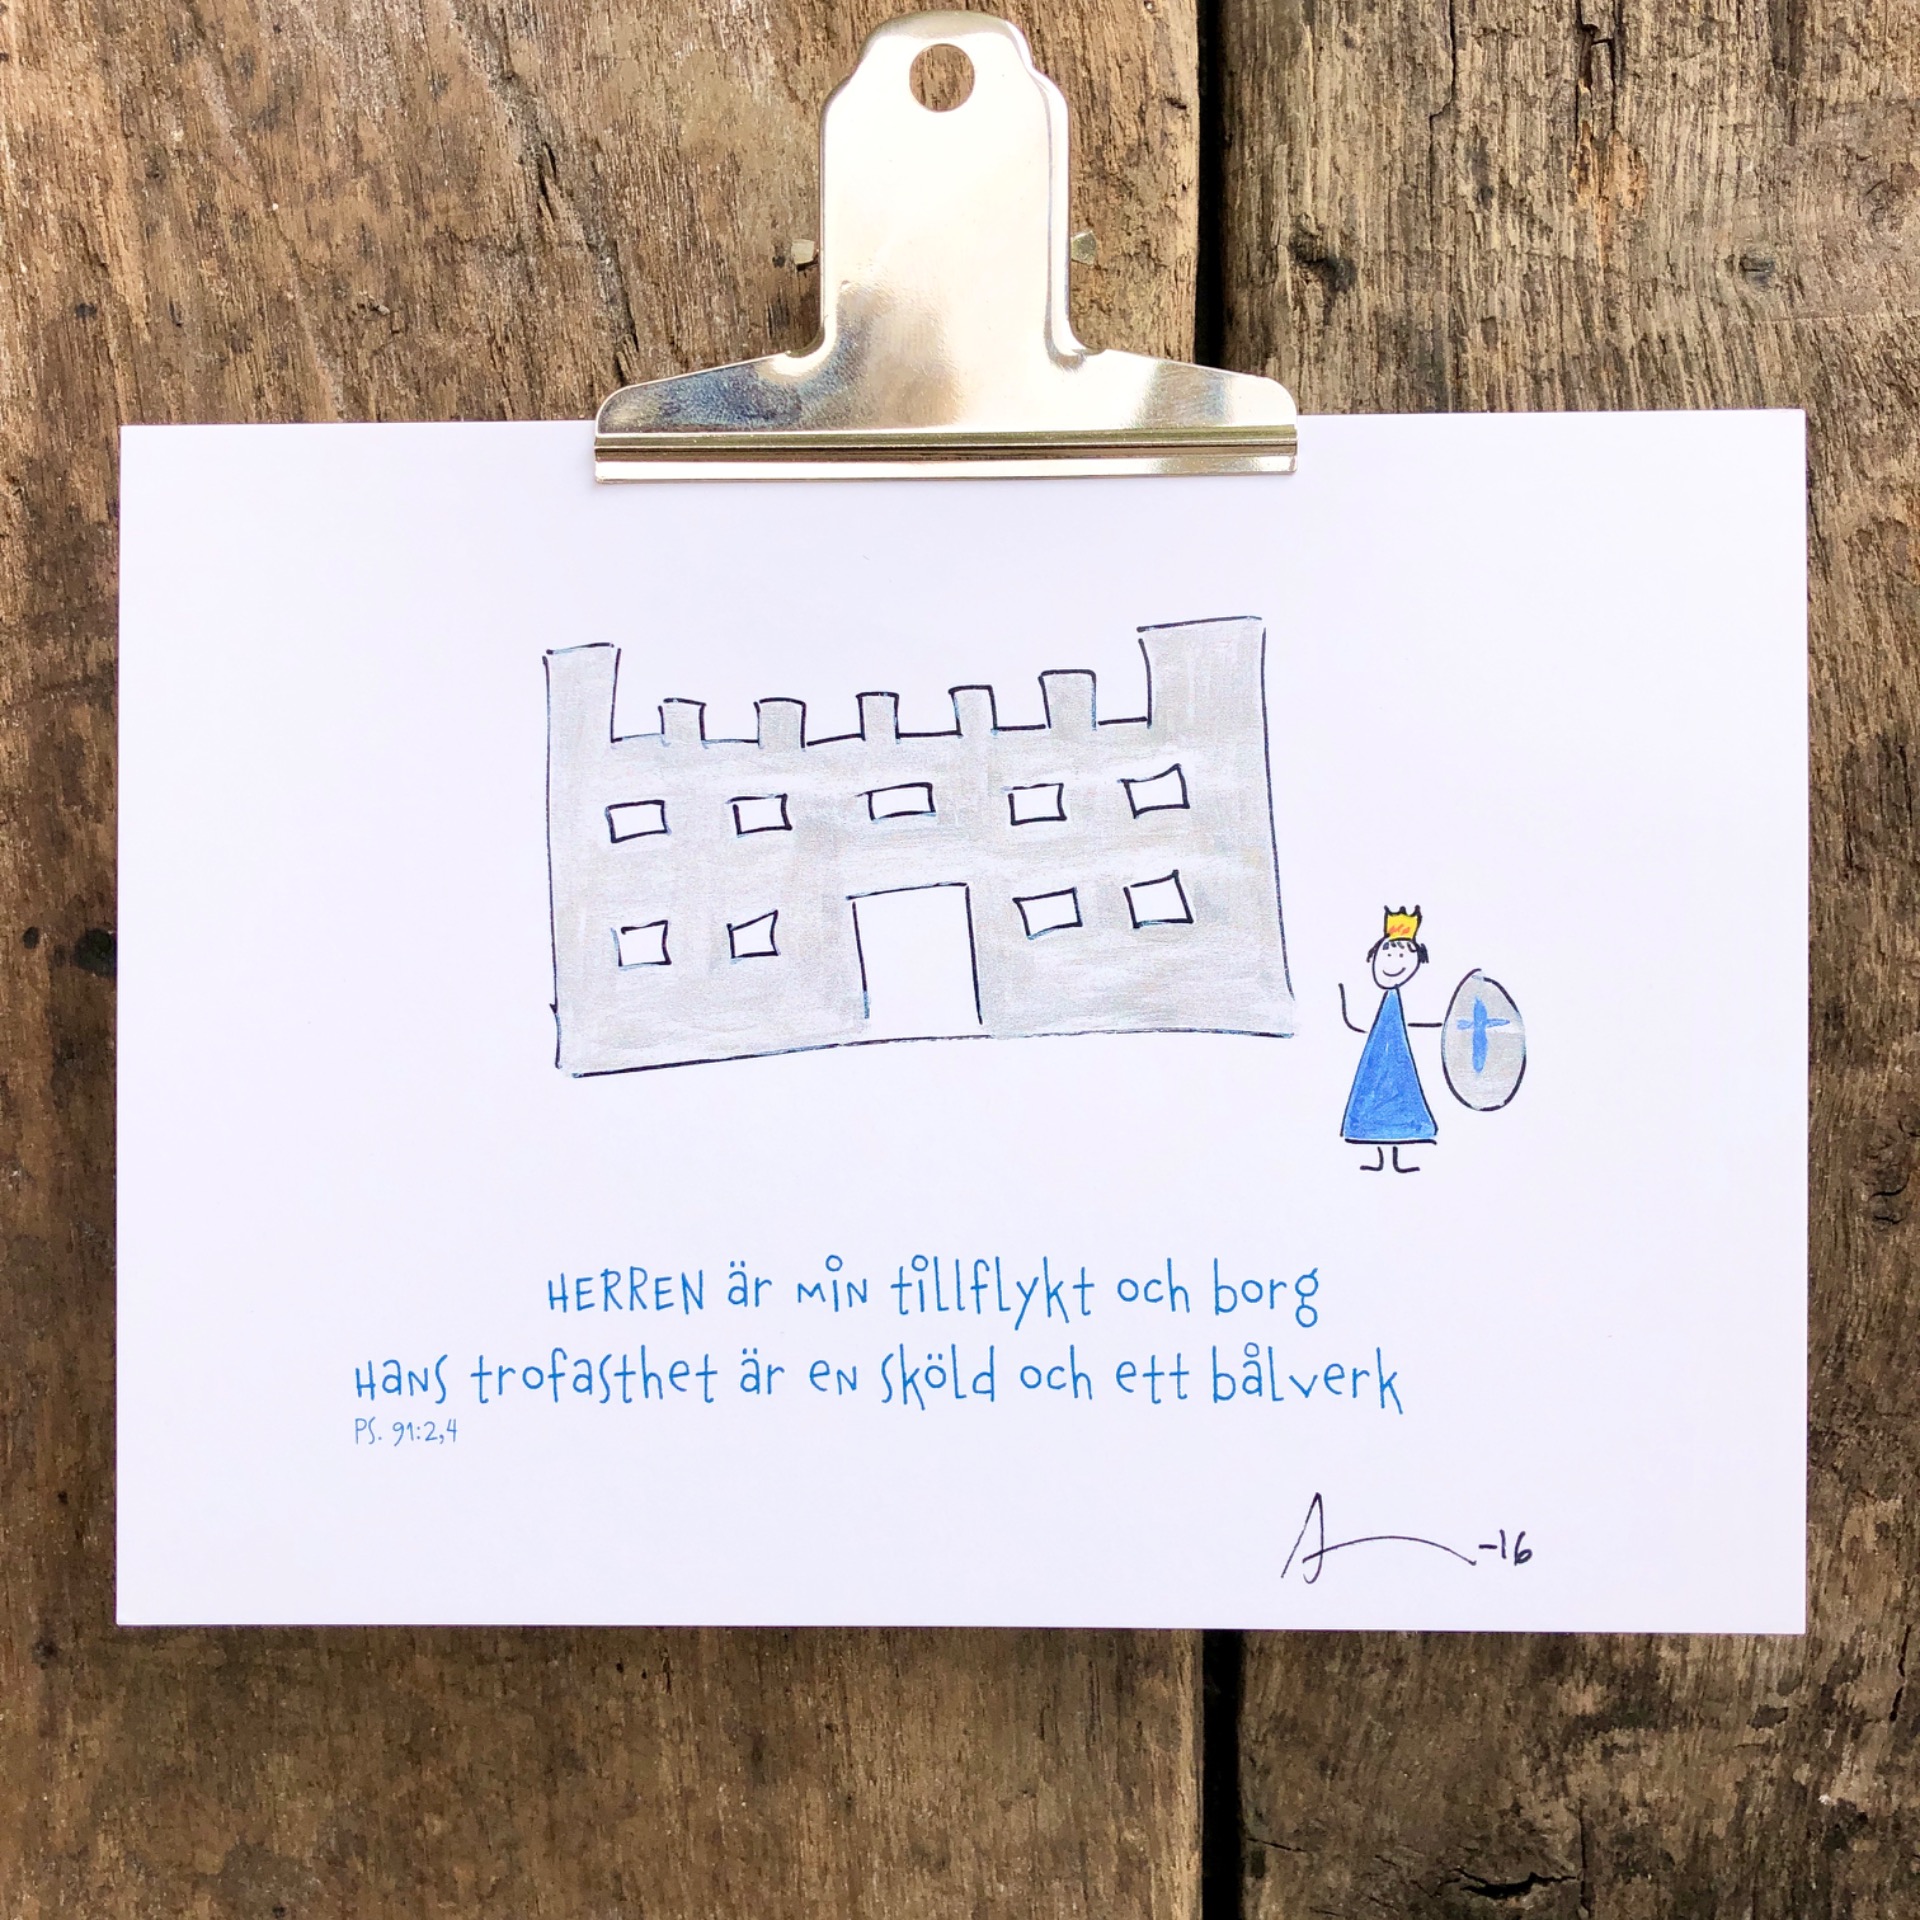 HERREN är min tillflykt och borg
Hans trofasthet är en sköld och ett bålverk
PS. 91:2,4
A -16